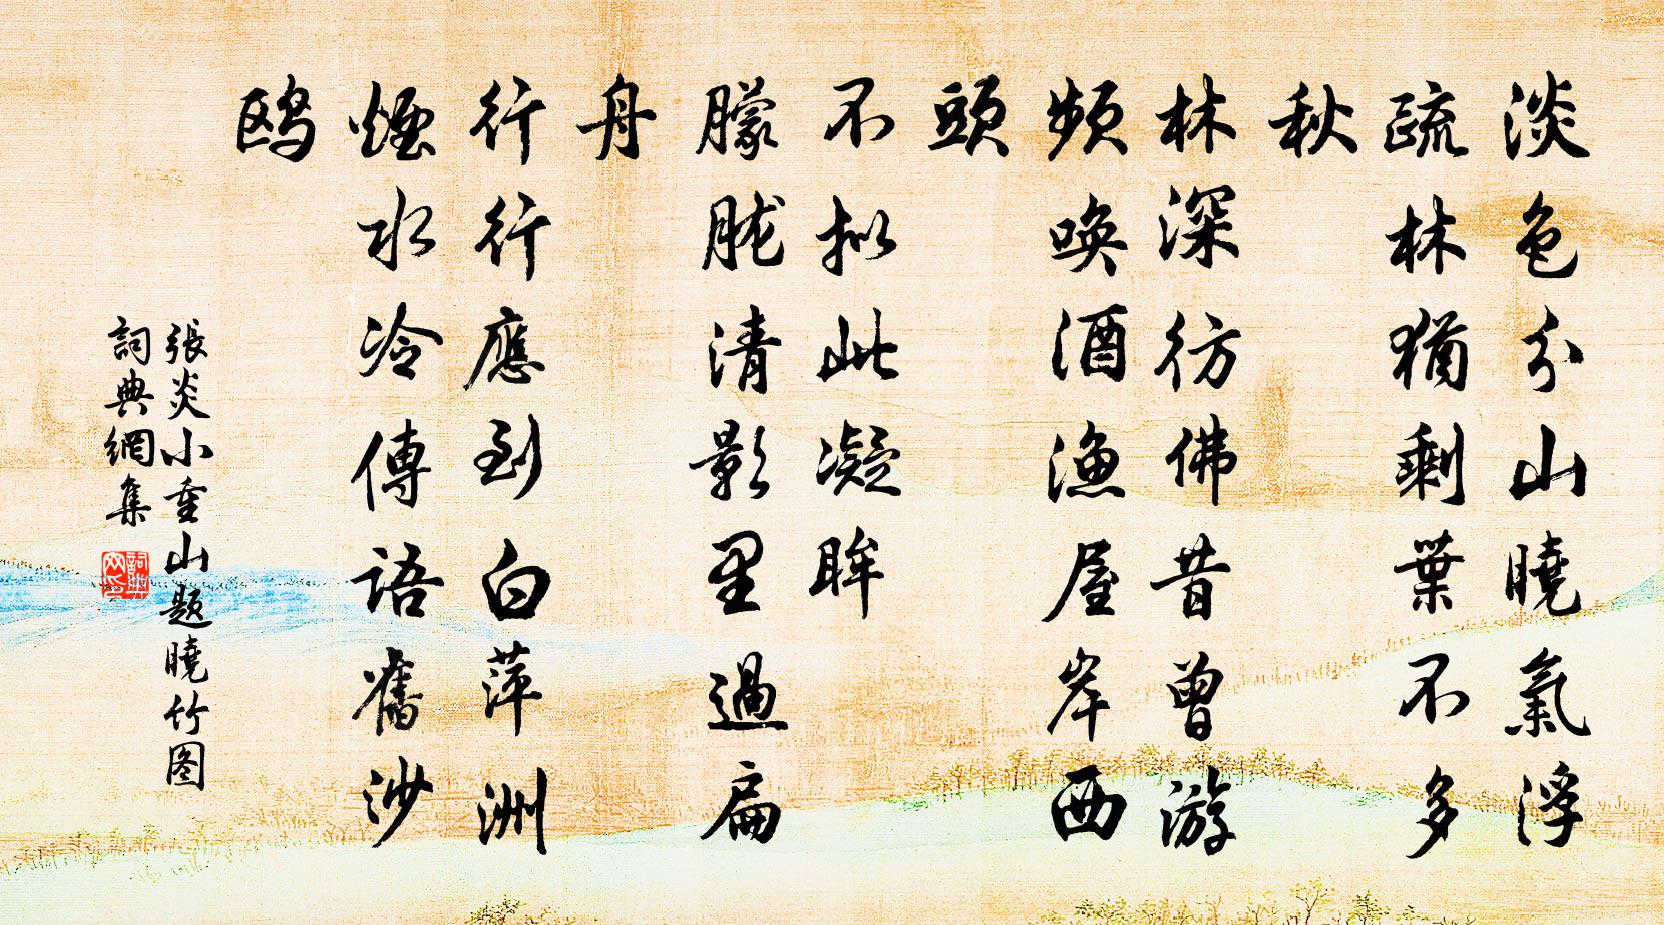 淡色分山曉氣浮
疏林猶剩葉不多
秋
林深彷佛昔曾游
頻喚酒漁屋岸西
頭
不拟此凝眸
朦朧清影里過扁
舟
行行應到白萍洲
煙水冷傳語舊沙
鸥
張炎小重山題曉竹图
詞典網集